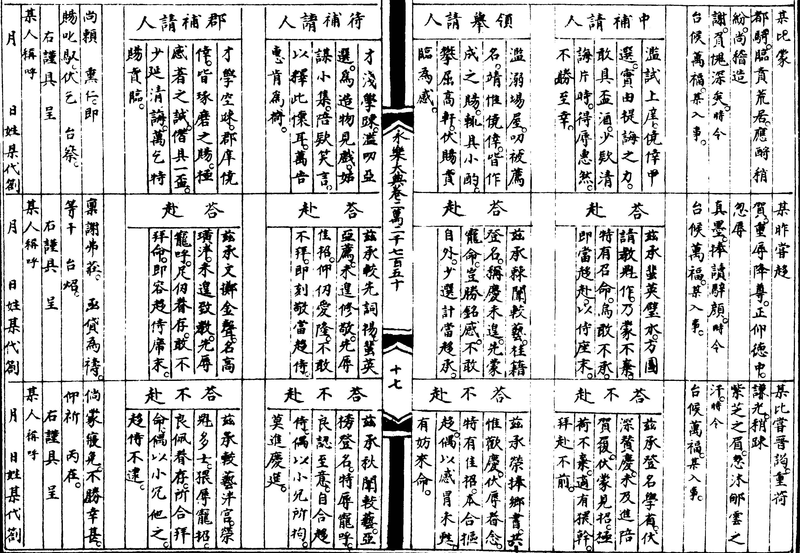 某比蒙
都騎臨貴荒居應酬稍
紛尚稽造
謝負愧深矣時今
台候萬福某入事
中補請人
濫試上庠僥倖甲
選實由提誨之力
敢具盃酒少欵清
誨片時得辱惠然
不勝至幸
領舉請人
濫溺場屋叨被薦
名靖惟僥倖皆作
成之賜輒具小酌
攀屈高軒伏賜賁
臨為感
永樂大典卷二萬二千七百五十
十七
待補請人
才淺學疎濫叨亞
選為造物見戲姑
謀小集陪欵笑言
以釋此懷耳萬告
惠肯為荷
郡補請人
才學空疎郡庠僥
倖皆琢磨之賜極
感著之誠僭具一盃
少延清誨萬乞特
賜賁臨
尚賴 熏仁即
賜叱馭伏乞 台察
右謹具 呈
某人稱呼
月 日姓某代劄
某昨嘗趨
賀重辱降尊正仰德中
忽辱
真墨捧讀騂顏時今
台候萬福某入事
答赴
茲承蜚英璧水方圖
請敎作乃蒙不棄
特有召命焉敢不承
即當趨赴以侍座末
答赴
茲承棘闈較藝桂籍
登名稱慶未遑先蒙
寵命豈勝銘感不敢
自外少選計當趨承
答赴
茲承較先詞場蜚英
亞薦未遑修敬先辱
佳招仰仞愛隆不敢
不拜即刻敬當趨侍
答赴
茲承文擲金聲名高
璜泮未遑致先辱
寵呼足仞眷存敢不
拜命即容趨侍席末
稟謝弗莊亟貸為禱
等干 台炤
右謹具 呈
某人稱呼
月 日姓某代劄
某比嘗晉詣重荷
謙光稍踈
紫芝之眉忽沐郇雲之
汗時今
台候萬福某入事
答不赴
茲承登名學省伏
深贊慶未及進陪
賀復伏蒙見招極
荷不棄適有猥幹
拜赴不前
答不赴
茲承榮捧鄉書共
惟歡慶伏辱眷念
特有佳招本合振
趨偶以感冒未甦
有妨來命
答不赴
茲承秋闈較藝亞
榜登名特辱寵呼
良認至意自合趨
侍偶以小冗所拘
莫進慶筵
答不赴
茲承較藝泮宮榮
魁多士猥辱寵招
良佩眷存所合拜
命偶以小冗他之
趨侍不逮
倘蒙寬免不勝幸甚
仰祈 丙在
右謹具 呈
某人稱呼
月 日姓某代劄